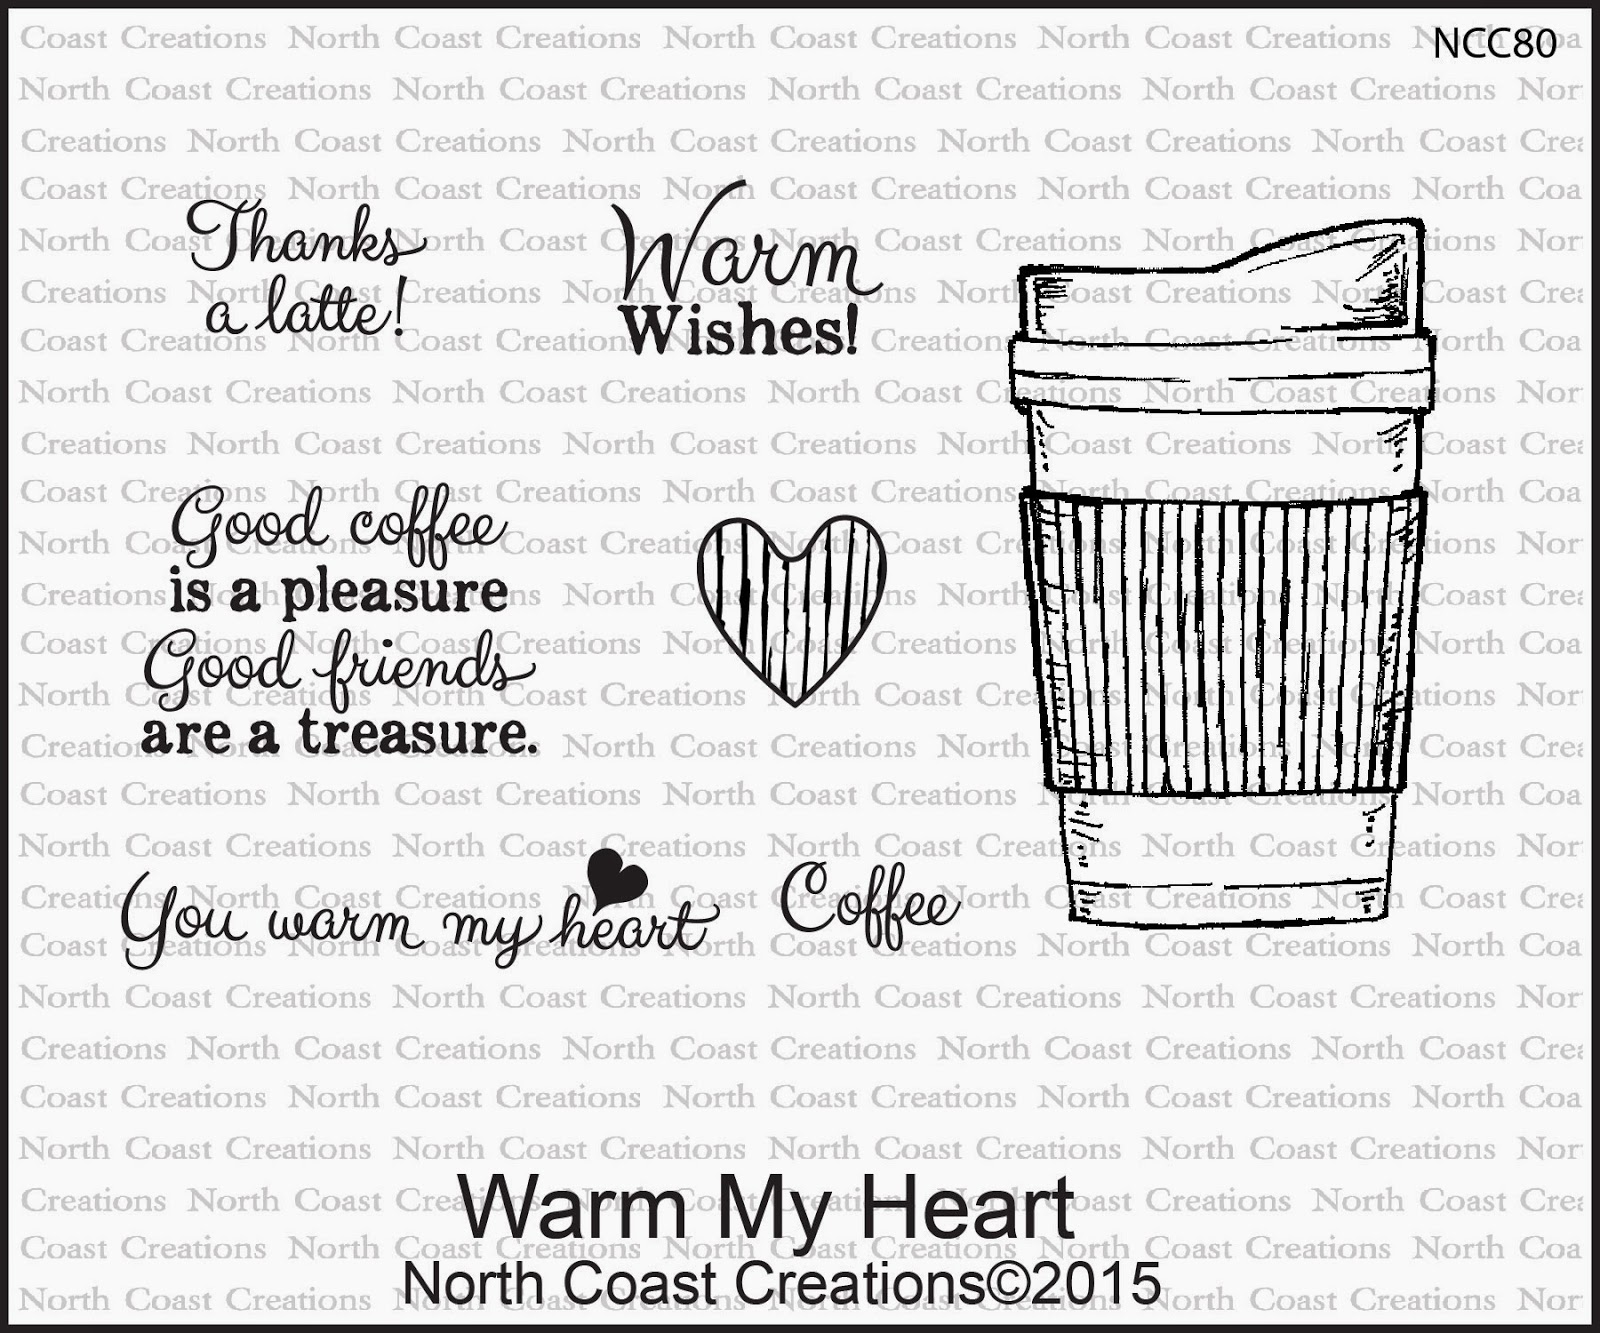 NCC80
Thanks
a latte!
Warm
Wishes!
Good coffee
is a pleasure
Good friends
are a treasure.
You warm my heart
Coffee
Warm My Heart
North Coast Creations©2015
Coast Creations North Coast Creations North Coast Creations North Coast Creations North Coa
North Coast Creations North Coast Creations North Coast Creations North Coast Creations Nor
Creations North Coast Creations North Coast Creations North Coast Creations North Coast Crea